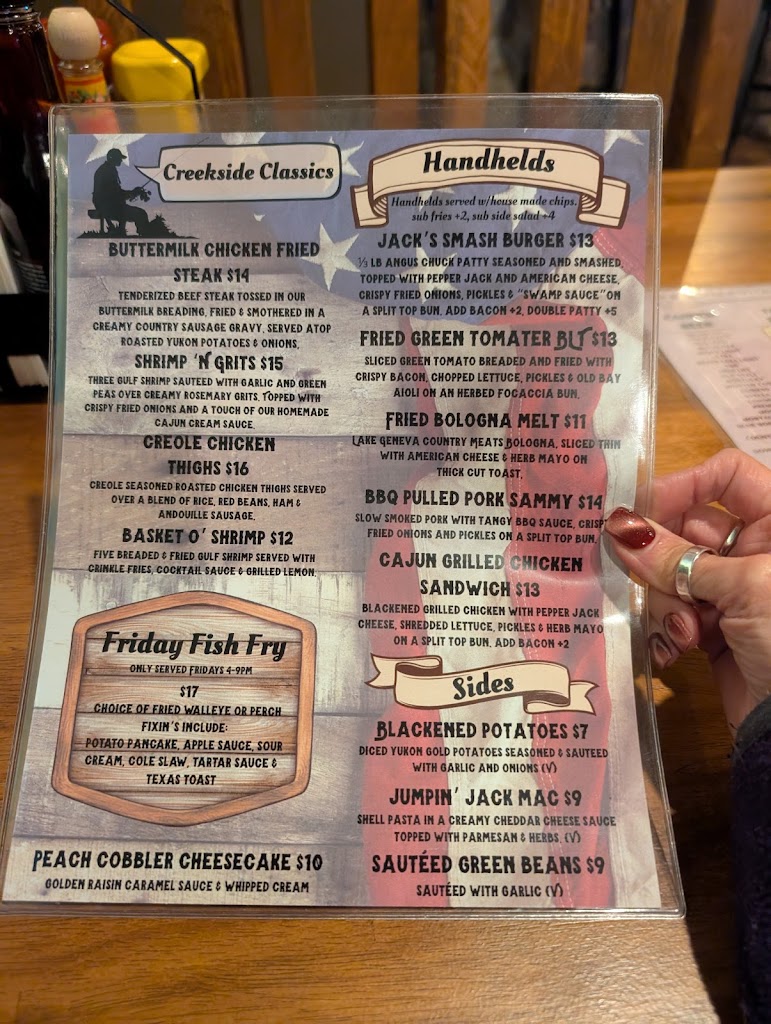 Creekside Classics
BUTTERMILK CHICKEN FRIED
STEAK $14
TENDERIZED BEEF STEAK TOSSED IN OUR
BUTTERMILK BREADING, FRIED & SMOTHERED IN A
CREAMY COUNTRY SAUSAGE GRAVY. SERVED ATOP
ROASTED YUKON POTATOES & ONIONS.
SHRIMP 'N GRITS $15
THREE GULF SHRIMP SAUTEED WITH GARLIC AND GREEN
PEAS OVER CREAMY ROSEMARY GRITS. TOPPED WITH
CRISPY FRIED ONIONS AND A TOUCH OF OUR HOMEMADE
CAJUN CREAM SAUCE.
CREOLE CHICKEN
THIGHS $16
CREOLE SEASONED ROASTED CHICKEN THIGHS SERVED
OVER A BLEND OF RICE, RED BEANS, HAM &
ANDOUILLE SAUSAGE.
BASKET O' SHRIMP $12
FIVE BREADED & FRIED GULF SHRIMP SERVED WITH
CRINKLE FRIES, COCKTAIL SAUCE & GRILLED LEMON.
Friday Fish Fry
ONLY SERVED FRIDAYS 4-9PM
$17
CHOICE OF FRIED WALLEYE OR PERCH
FIXIN'S INCLUDE:
POTATO PANCAKE, APPLE SAUCE, SOUR
CREAM, COLE SLAW, TARTAR SAUCE &
TEXAS TOAST
PEACH COBBLER CHEESECAKE $10
GOLDEN RAISIN CARAMEL SAUCE & WHIPPED CREAM
Handhelds
Handhelds served w/house made chips,
sub fries +2, sub side salad +4
JACK'S SMASH BURGER $13
⅓ LB ANGUS CHUCK PATTY SEASONED AND SMASHED,
TOPPED WITH PEPPER JACK AND AMERICAN CHEESE,
CRISPY FRIED ONIONS, PICKLES & "SWAMP SAUCE" ON
A SPLIT TOP BUN. ADD BACON +2, DOUBLE PATTY +5
FRIED GREEN TOMATER BLT $13
SLICED GREEN TOMATO BREADED AND FRIED WITH
CRISPY BACON, CHOPPED LETTUCE, PICKLES & OLD BAY
AIOLI ON AN HERBED FOCACCIA BUN.
FRIED BOLOGNA MELT $11
LAKE GENEVA COUNTRY MEATS BOLOGNA, SLICED THIN
WITH AMERICAN CHEESE & HERB MAYO ON
THICK CUT TOAST.
BBQ PULLED PORK SAMMY $14
SLOW SMOKED PORK WITH TANGY BBQ SAUCE, CRISP
FRIED ONIONS AND PICKLES ON A SPLIT TOP BUN.
CAJUN GRILLED CHICKEN
SANDWICH $13
BLACKENED GRILLED CHICKEN WITH PEPPER JACK
CHEESE, SHREDDED LETTUCE, PICKLES & HERB MAYO
ON A SPLIT TOP BUN. ADD BACON +2
Sides
BLACKENED POTATOES $7
DICED YUKON GOLD POTATOES SEASONED & SAUTEED
WITH GARLIC AND ONIONS (V)
JUMPIN' JACK MAC $9
SHELL PASTA IN A CREAMY CHEDDAR CHEESE SAUCE
TOPPED WITH PARMESAN & HERBS. (V)
SAUTÉED GREEN BEANS $9
SAUTÉED WITH GARLIC (V)